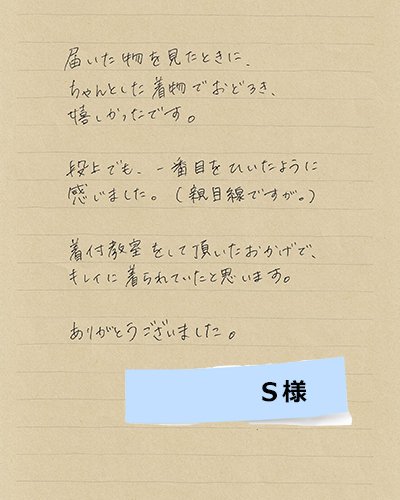 届いた物を見たときに、
ちゃんとした着物でおどろき、
嬉しかったです。
段上でも、一番目をひいたように
感じました。(親目線ですが。)
着付教室をして頂いたおかげで、
キレイに着られていたと思います。
ありがとうございました。
S様